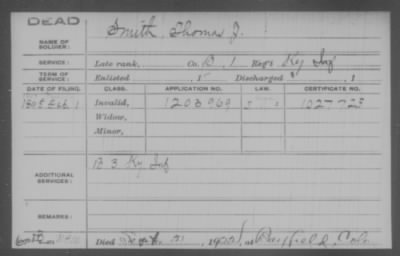 DEAD
NAME OF SOLDIER: Smith, Thomas J.
SERVICE: Late rank, Co. B, 1 Reg't Ky Inf
TERM OF SERVICE: Enlisted , 1 Discharged , 1
DATE OF FILING. CLASS. APPLICATION NO. LAW. CERTIFICATE NO.
Feb 1 Invalid, 1203969 1027723
Widow,
Minor,
ADDITIONAL SERVICES: B 3 Ky Inf
REMARKS:
Died at Bayfield, Colo